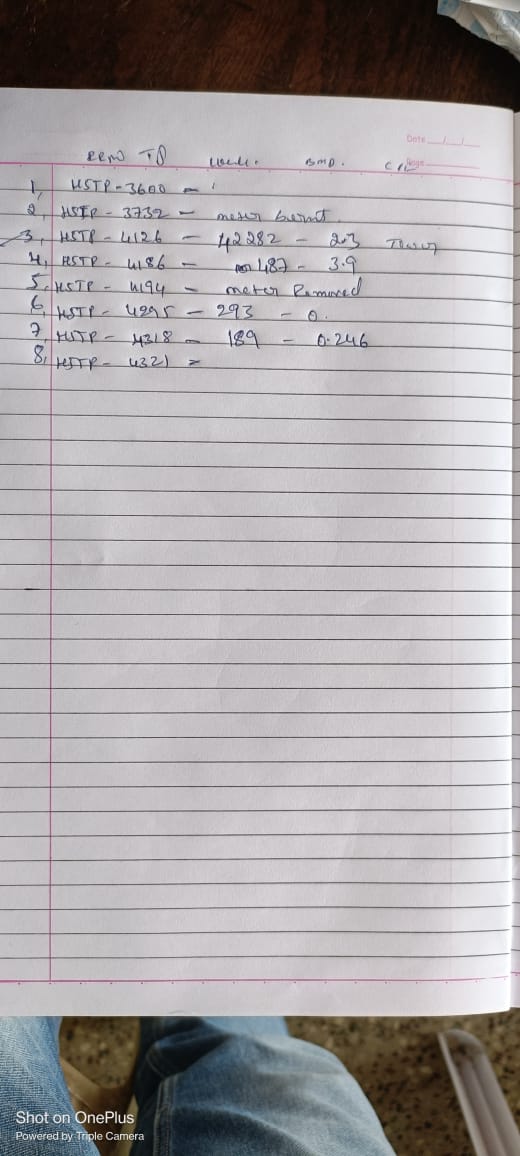 Date
Page
RRNO TO BMD.
1, HSTP-3600 -
2, HSTP - 3732 - meter burnt.
3, HSTP - 4126 - 42282 - 2.3
4, HSTP - 4186 - 487 - 3.9
5, HSTP - 4194 - meter Removed
6, HSTP - 4295 - 293 - 0.
7, HSTP - 4318 - 189 - 0.246
8, HSTP - 4321 =
Shot on OnePlus
Powered by Triple Camera